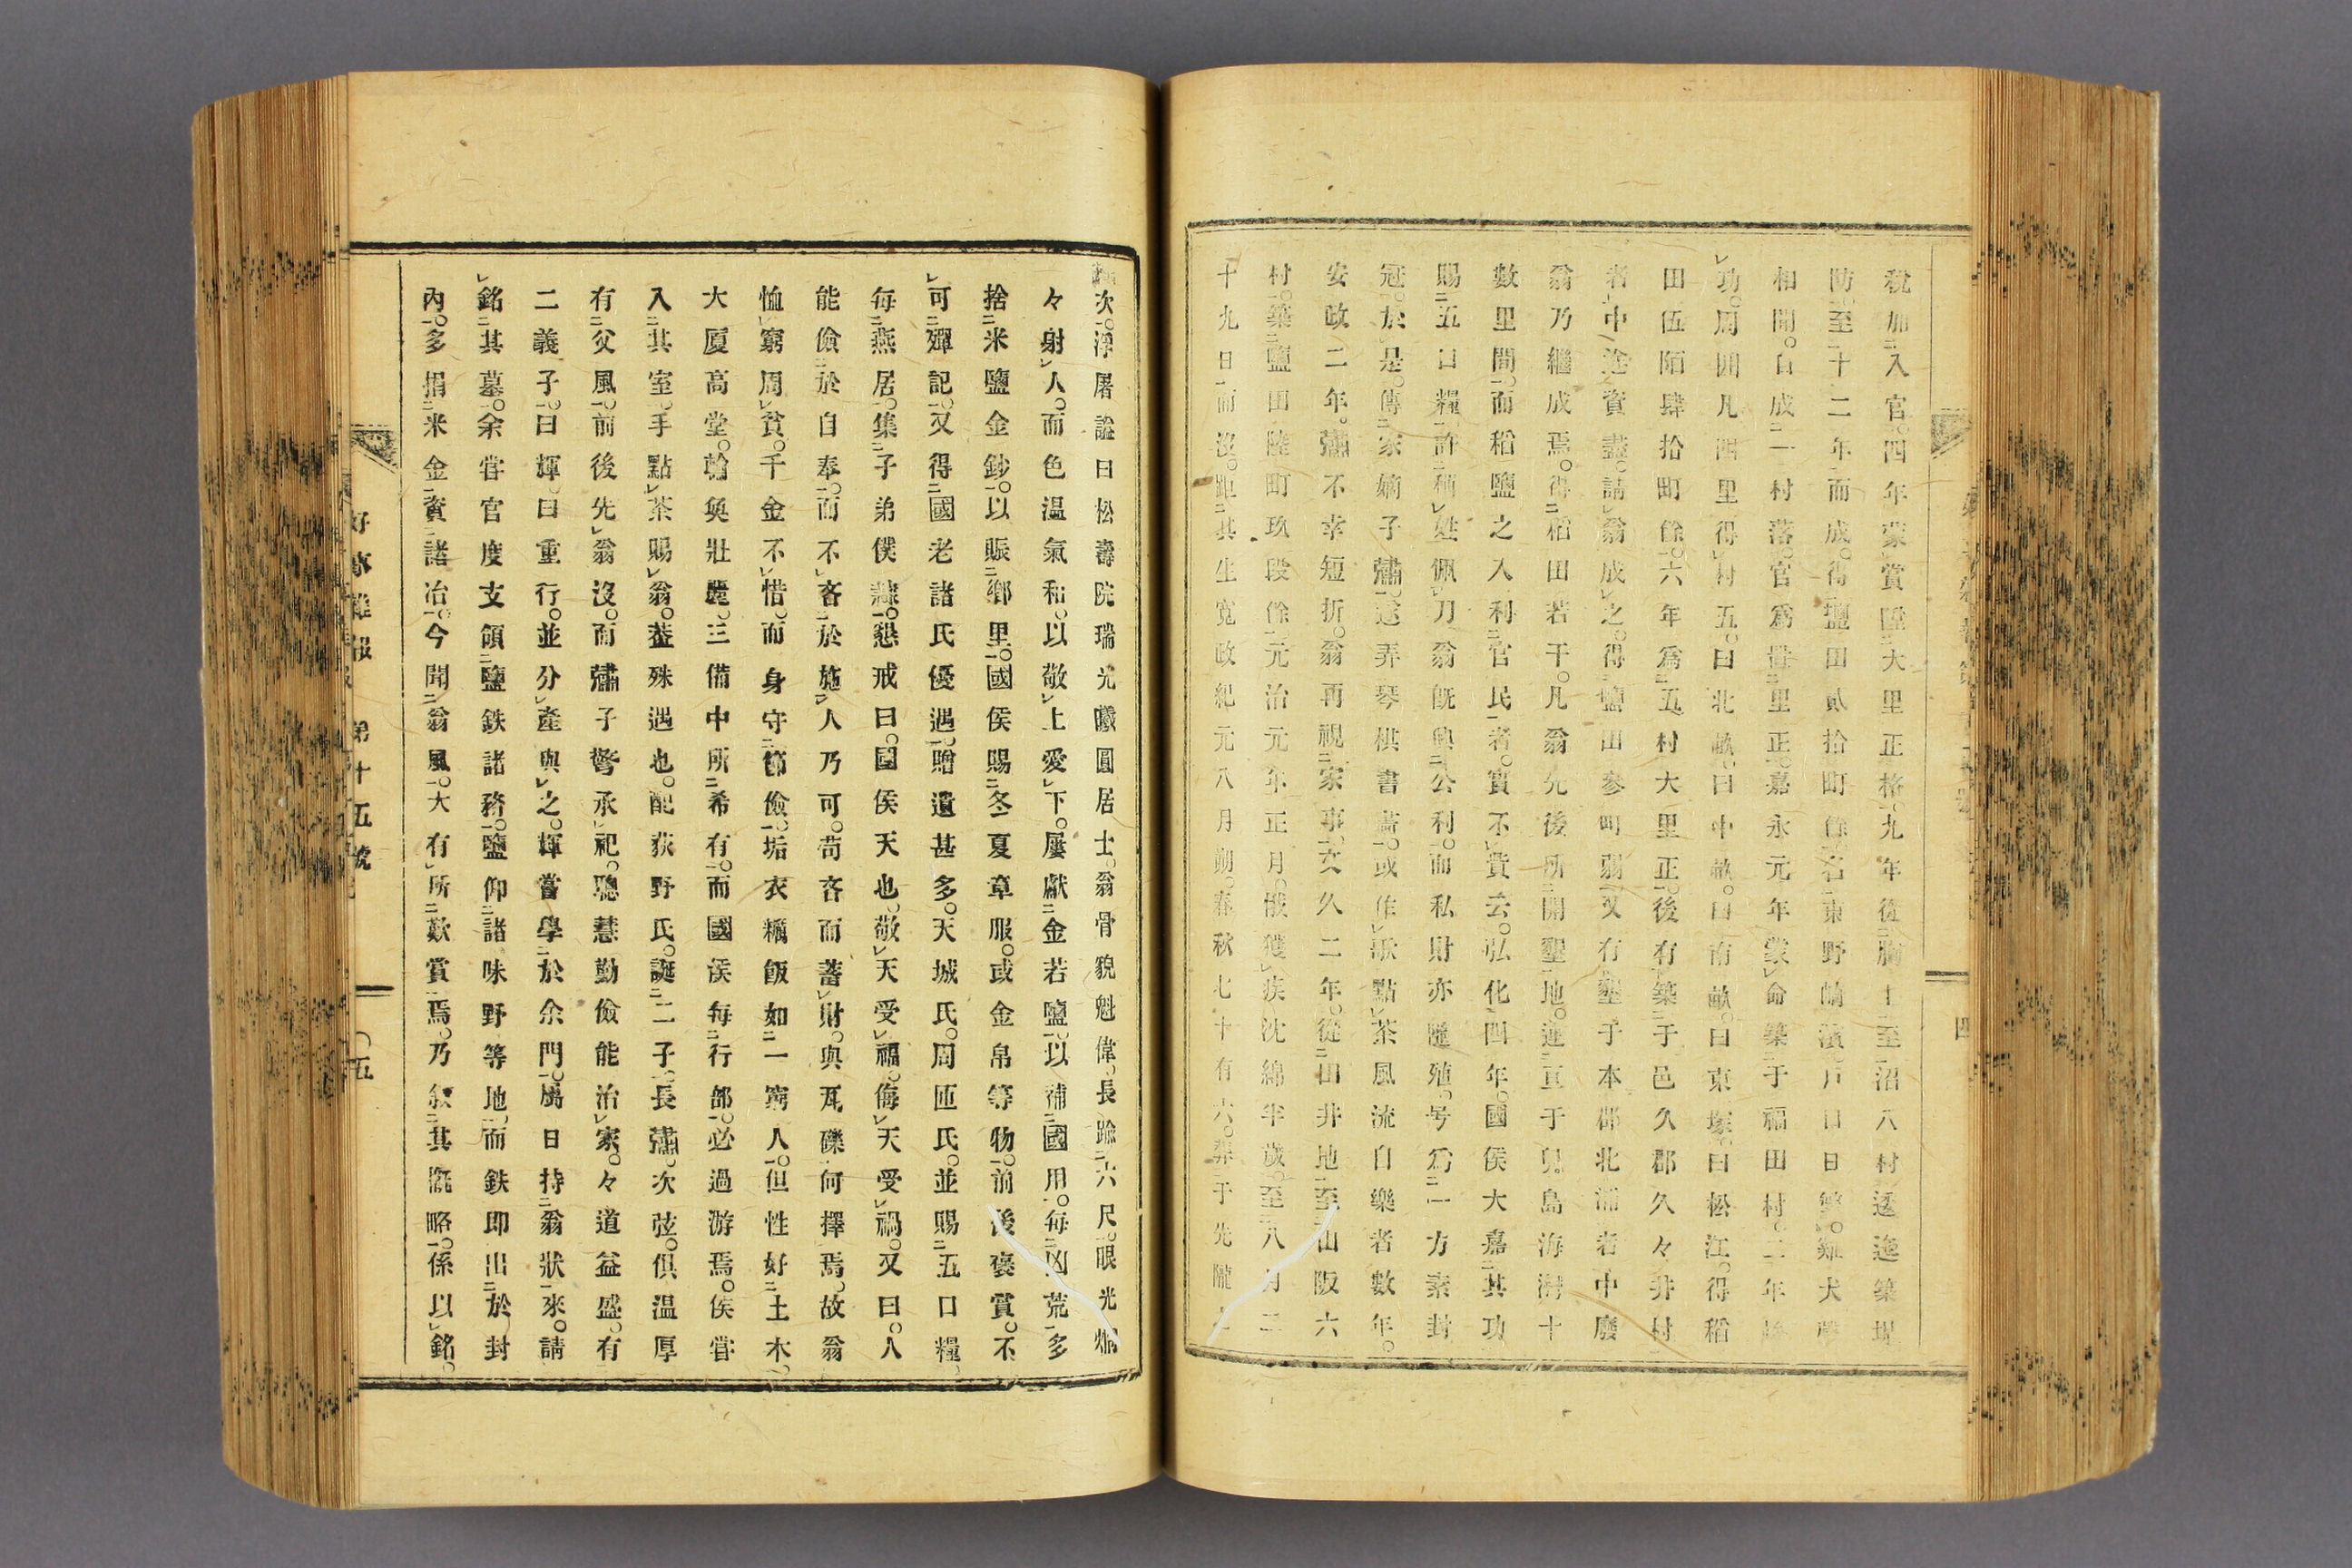 税加入官。四年蒙賞陞大里正格。九年從胸上至沼八村逶迤築堤
防。至十二年而成。得塩田貳拾町餘。名東野﨑濱。戸口日繁。雞犬聲
相聞。自成一村落。官爲置里正。嘉永元年蒙命築于福田村。二年竣
功。周囲凡四里得村五。曰北畝。曰中畝。曰南畝。曰東塚。曰松江。得稻
田伍陌肆拾町餘。六年爲五村大里正。後有築于邑久郡久々井村
者。中途資盡。請翁成之。得鹽田參町弱。又有墾于本郡北浦者。中廢
翁乃繼成焉。得稻田若干。凡翁先後所開墾地。連亘于兒島海濱十
數里間。而稻鹽之入利官民者。實不貲云。弘化四年。國侯大嘉其功
賜五口糧。許稱姓佩刀翁既興公利。而私財亦隨殖。号爲一方素封
冠。於是。傳家嫡子彇。遂弄琴棋書畵。或作歌點茶風流自樂者數年。
安政二年。彇不幸短折。翁再視家事。文久二年。從田井地至山阪六
村。築鹽田陸町玖段餘。元治元年正月。俄獲疾沈綿半歲。至八月二
十九日而沒。距其生寛政紀元八月朔。春秋七十有六。葬于先隴
次。浮屠諡曰松壽院瑞光巍圓居士。翁骨貌魁偉。長踰六尺。眼光炯
々射人。而色温氣和。以敬上愛下。屢獻金若鹽。以補國用。每凶荒多
捨米鹽金鈔。以賑鄉里。國侯賜冬夏章服。或金帛等物。前後褒賞。不
可殫記。又得國老諸氏優遇。贈遺甚多。天城氏。周匝氏。並賜五口糧。
每燕居。集子弟僕隸。懇戒曰。國侯天也。敬天受福。侮天受禍。又曰。人
能儉於自奉。而不吝於施人乃可。苟吝而蓄財。與瓦礫何擇焉。故翁
恤窮周貧。千金不惜。而身守節儉。垢衣糲飯如一窮人。但性好土木。
大廈高堂。輪奐壯麗。三備中所希有。而國侯每行部。必過游焉。侯嘗
入其室。手點茶賜翁。葢殊遇也。配荻野氏。誕二子。長彇。次弦。俱温厚
有父風。前後先翁沒。而彇子䜘承祀。聰慧勤儉能治家。々道益盛。有
二義子。曰輝。曰重行。並分產與之。輝嘗學於余門。屬日持翁狀來。請
銘其墓。余嘗官度支領鹽鉄諸務。鹽仰諸味野等地。而鉄即出於封
內。多捐米金資諸冶。今聞翁風。大有所歎賞焉。乃叙其概略。係以銘。
好事雑報 第十五號 ○五